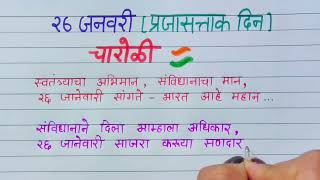 २६ जनवरी (प्रजासत्ताक दिन)
चारोळी
स्वतंत्र्याचा अभिमान, संविधानाचा मान,
२६ जानेवारी सांगते - भारत आहे महान...
संविधानाने दिला आम्हाला अधिकार,
२६ जानेवारी साजरा करूया सणदार